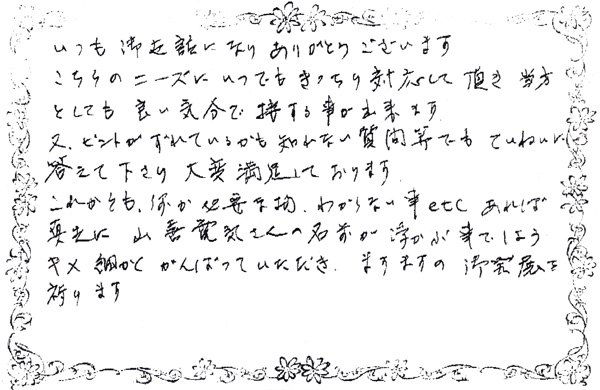 いつも御世話になりありがとうございます
こちらのニーズにいつでもきっちり対応して頂き 当方
としても良い気分で接する事が出来ます.
又、ピントがずれているかも知れない質問等でもていねいに
答えて下さり 大変満足しております.
これからも、何か必要な物、わからない事etcあれば
真先に 山善電気さんの名前が浮かぶ事でしょう
キメ細かくがんばっていただき、ますますの御発展を
祈ります